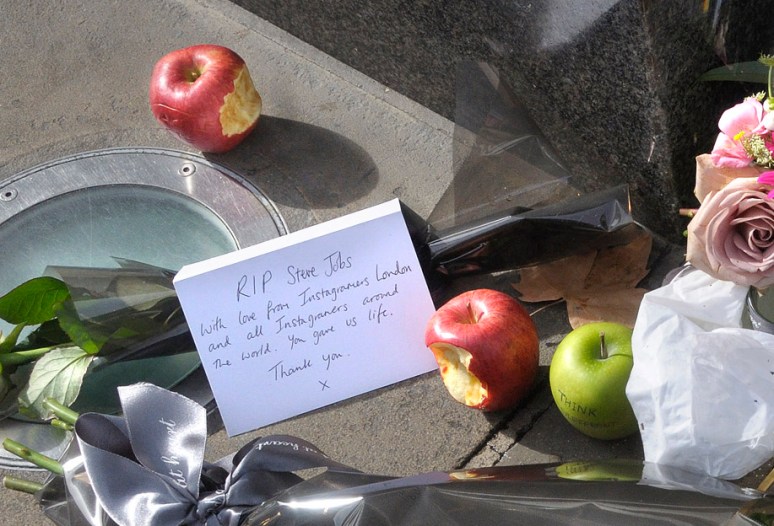 RIP Steve Jobs
With love from Instagramers London
and all Instagramers around
the world. You gave us life.
Thank you.
x
THINK